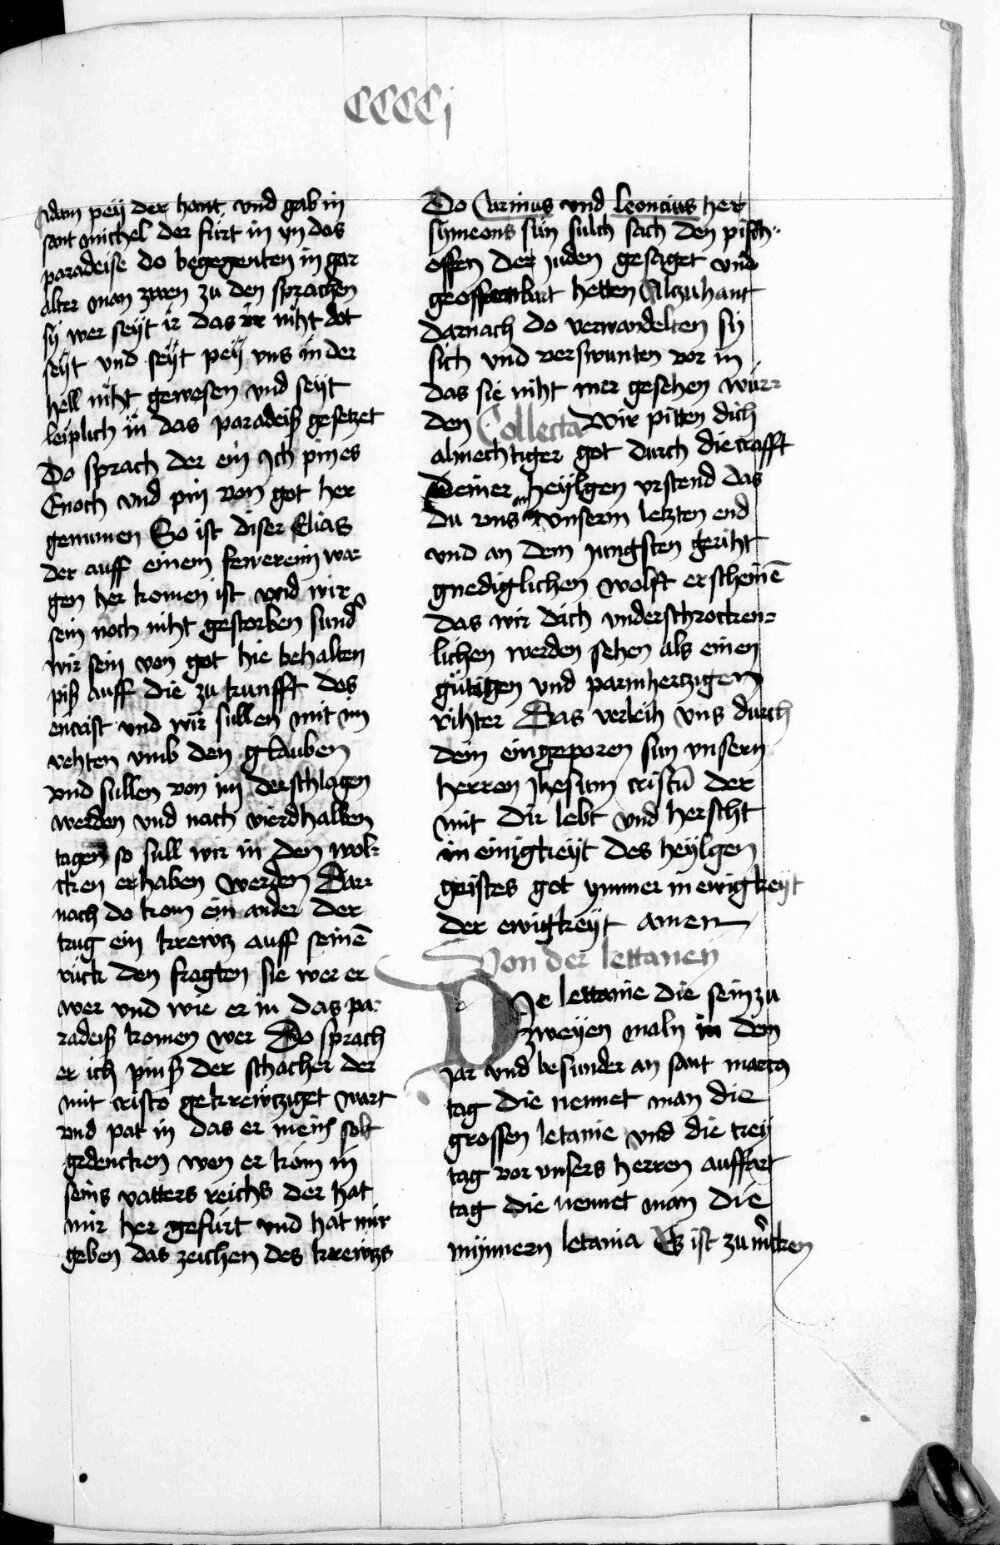 CCCCj
Adam peÿ der hant vnd gab in
sant michel der fürt in yn das
paradeise do begegenten in gar
alter man zwen zu den sprachen
sÿ wer seÿt ir das ir niht dot
seÿt vnd seÿt peÿ vns in der
hell niht gewesen vnd seÿt
leiplich in das paradeiß gesetzet
Do sprach der ein Ich pin es
Enoch vnd pin von got her
genumen So ist diser Elias
der auff einem fewerein wa
gen her komen ist vnd wir
sein noch niht gestorben sund̾
wir sein von got hie behalten
piß auff die zu kunfft des
encrist vnd wir sullen mit im
vehten vmb den glauben
vnd sullen von im derschlagen
werden vnd nach vierdhalben
tagen so sull wir in den wol-
cken erhaben werden Dar-
nach do kom ein ander der
trug ein krewtz auff seinē
rück den fragten sie wer er
wer vnd wie er in das pa-
radeiß komen wer Do sprach
er ich pinß der schacher der
mit cristo gekrewtziget wart
vnd pat in das er mein solt
gedencken wen er kom in
seins vatters reichs der hat
mir her gefürt vnd hat mir
geben das zeichen des krewtzs
Do Carinus vnd leoncius her
symeons sün sulch sach den pisch-
offen der juden gesaget vnd
geoffenbart hetten Alzuhant
darnach do verwandelten sÿ
sich vnd verswunten vor in
das sie niht mer gesehen wur-
den Collecta Wir pitten dich
almechtiger got durch die crafft
deiner heÿlgen vrstend das
du vns an vnserm letzten end
vnd an dem jungsten geriht
gnediglichen wolst erscheinē
das wir dich vnderschrocken-
lichen werden sehen als einen
gütigen vnd parmhertzigen
rihter Das verleih vns durch
dein eingeporen sun vnsern
herren Jhesum cristū der
mit dir lebt vnd herscht
in einigkeÿt des heÿlgen
geistes got ymmer in ewigkeÿt
der ewigkeÿt amen
Von der lettanen
DIe lettanie die sein zu
zweyen maln in dem
Jar vnd besunder an sant marcus
tag die nennet man die
grossen letanie vnd die treÿ
tag vor vnsers herren auffart
tag die nennet man die
mÿnnern letania Es ist zu m̾cken